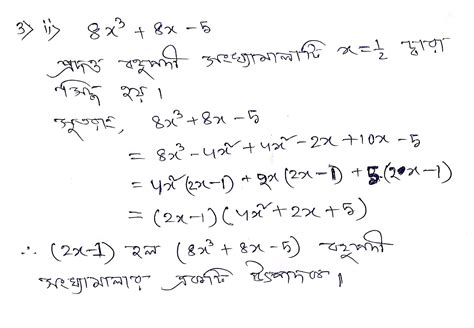 3) ii) 8x³ + 8x - 5
প্রদত্ত বহুপদী সংখ্যামালাটি x = ½ দ্বারা
সিদ্ধ হয়।
সুতরাং, 8x³ + 8x - 5
= 8x³ - 4x² + 4x² - 2x + 10x - 5
= 4x² (2x - 1) + 2x (2x - 1) + 5 (2x - 1)
= (2x - 1) (4x² + 2x + 5)
∴ (2x - 1) হল (8x³ + 8x - 5) বহুপদী
সংখ্যামালার একটি উৎপাদক।